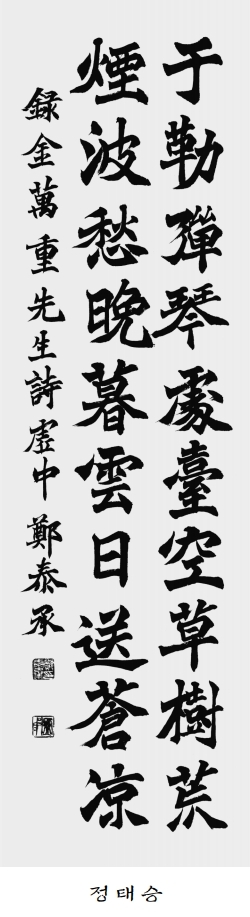 于勒彈琴處臺空草樹荒
煙波愁晚暮雲日送蒼凉
録金萬重先生詩虛中鄭泰承
정태승